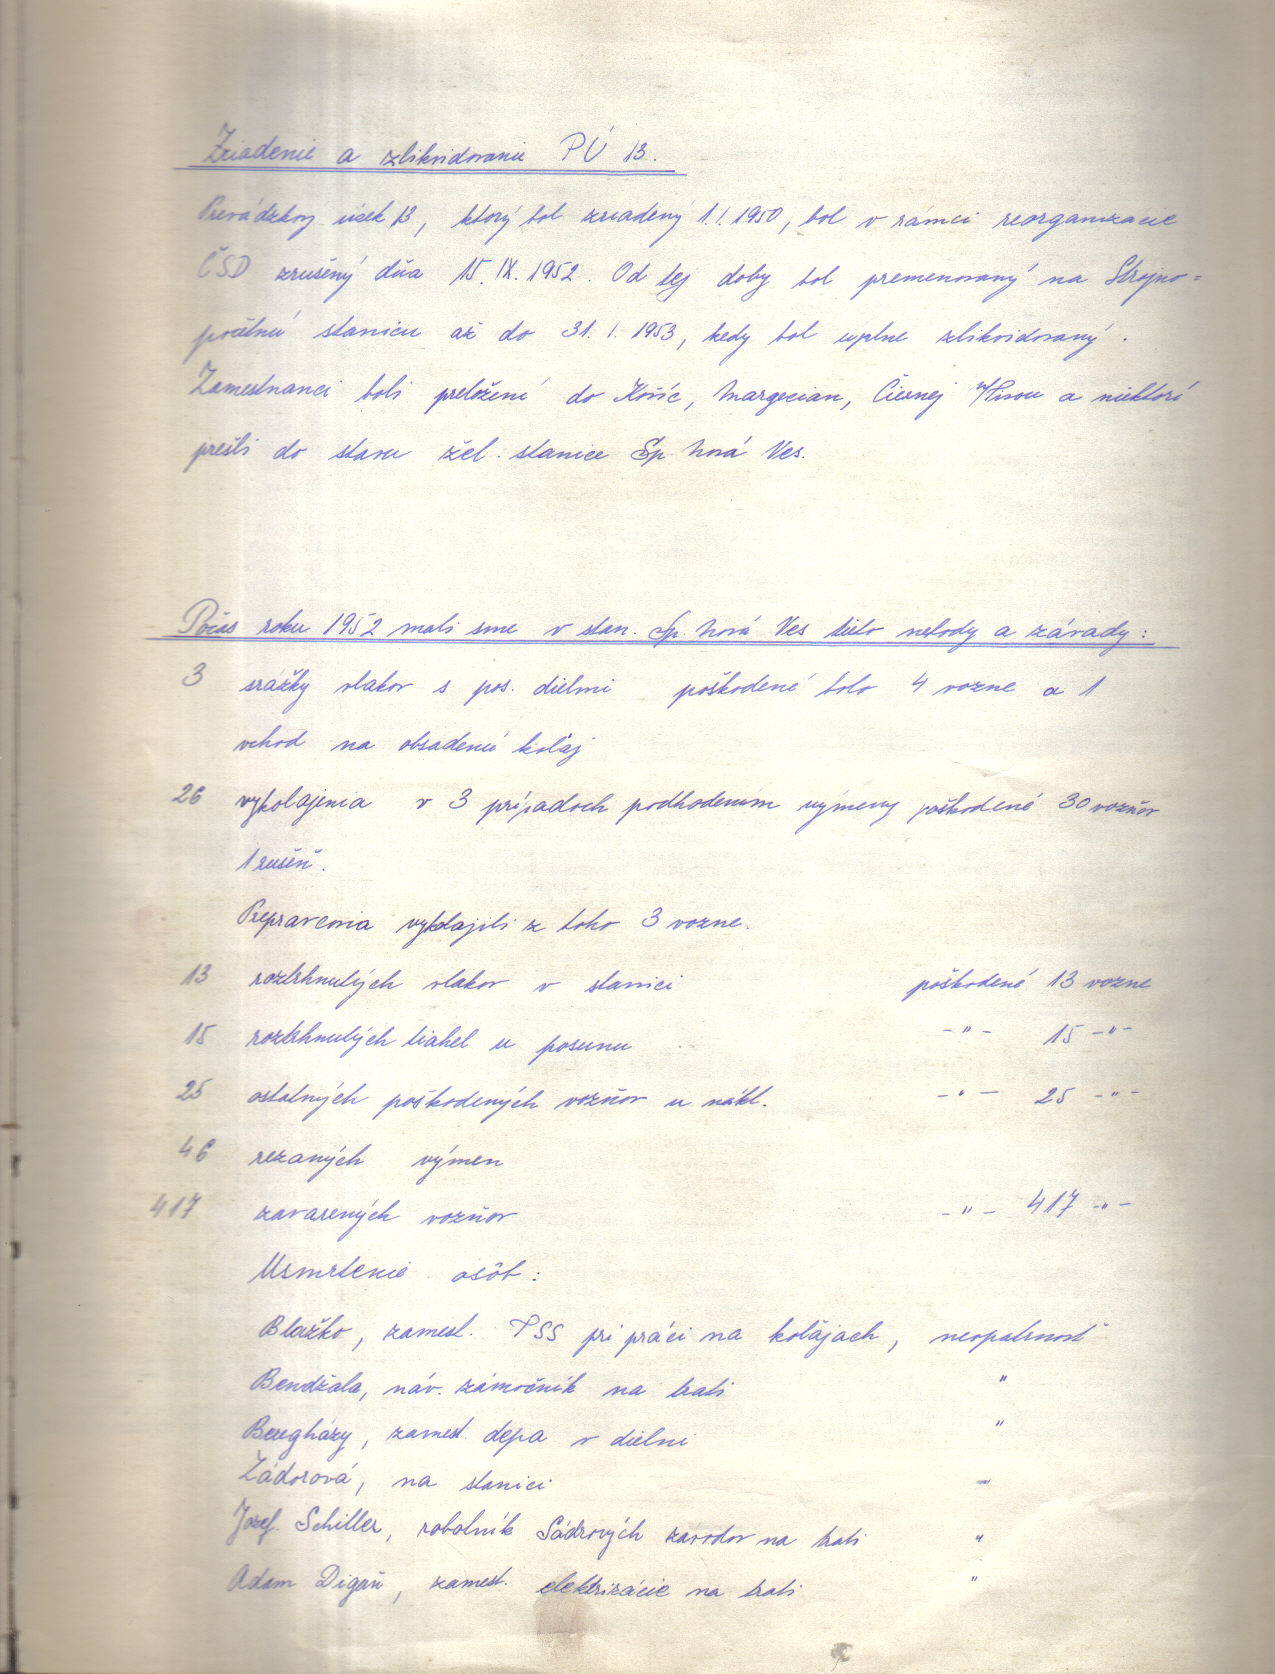 Zriadenie a zlikvidovanie PÚ 13.
Prevádzkový úsek 13, ktorý bol zriadený 1.I.1950, bol v rámci reorganizacie
ČSD zrušený dňa 15.IX.1952. Od tej doby bol premenovaný na Strojno=
početnú stanicu až do 31.I.1953, kedy bol uplne zlikvidovaný.
Zamestnanci boli preložení do Košíc, Margecian, Čiernej n/Tisou a niektorí
prešli do stavu žel. stanice Sp Nová Ves.
Počas roku 1952 mali sme v stan. Sp. Nová Ves tieto nehody a závady:
3 srážky vlakov s pos. dielmi poškodené bolo 4 vozne a 1
vchod na obsadenú koľaj
26 vykolajenia v 3 prípadoch podhodenim výmeny poškodené 30 vozňov
1 rušeň.
Prepravcovia vykolajili z toho 3 vozne.
13 roztrhnutých vlakov v stanici poškodené 13 vozne
15 roztrhnutých tiahel u posunu -"- 15 -"-
25 ostatných poškodených vozňov u nákl. -"- 25 -"-
46 rezaných výmen
417 zavarených vozňov -"- 417 -"-
Usmrtenie osôb:
Blažko, zamest. TSS pri práci na koľajach, neopatrnosť
Bendžala, náv. zámočník na trati "
Beregházy, zamest. depa v dielni "
Zádorová, na stanici "
Jozef Schiller, robotník Sádrových závodov na trati "
Adam Digaň, zamest. elektrizácie na trati "